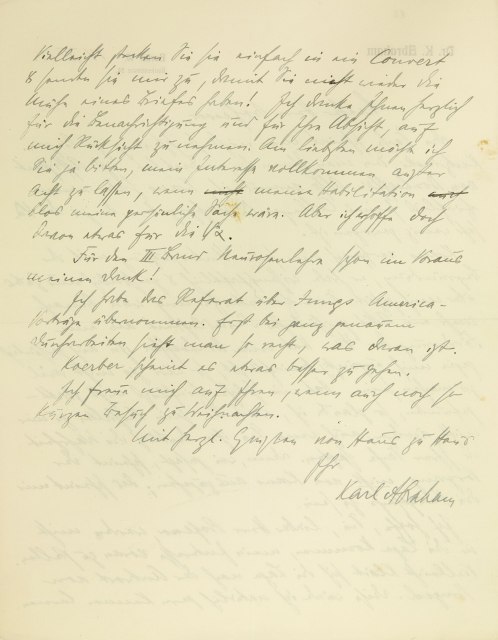 Vielleicht stecken Sie sie einfach in ein Couvert
& senden sie mir zu, damit Sie nicht wieder die
Mühe eines Briefes haben! Ich danke Ihnen herzlich
für die Benachrichtigung und für Ihre Absicht, auf
mich Rücksicht zu nehmen. Am liebsten möchte ich
Sie ja bitten, mein Interesse vollkommen außer
Acht zu lassen, wenn meine Habilitation
blos meine persönliche Sache wäre. Aber ich erhoffe doch
davon etwas für die ΨΑ.
Für den III Band Neurosenlehre schon im Voraus
meinen Dank!
Ich habe das Referat über Jungs America-
Vorträge übernommen. Erst bei ganz genauem
Durcharbeiten sieht man so recht, was daran ist.
Koerber scheint es etwas besser zu gehen.
Ich freue mich auf Ihren, wenn auch noch so
kurzen Besuch zu Weihnachten.
Mit herzl. Grüßen von Haus zu Haus
Ihr
Karl Abraham